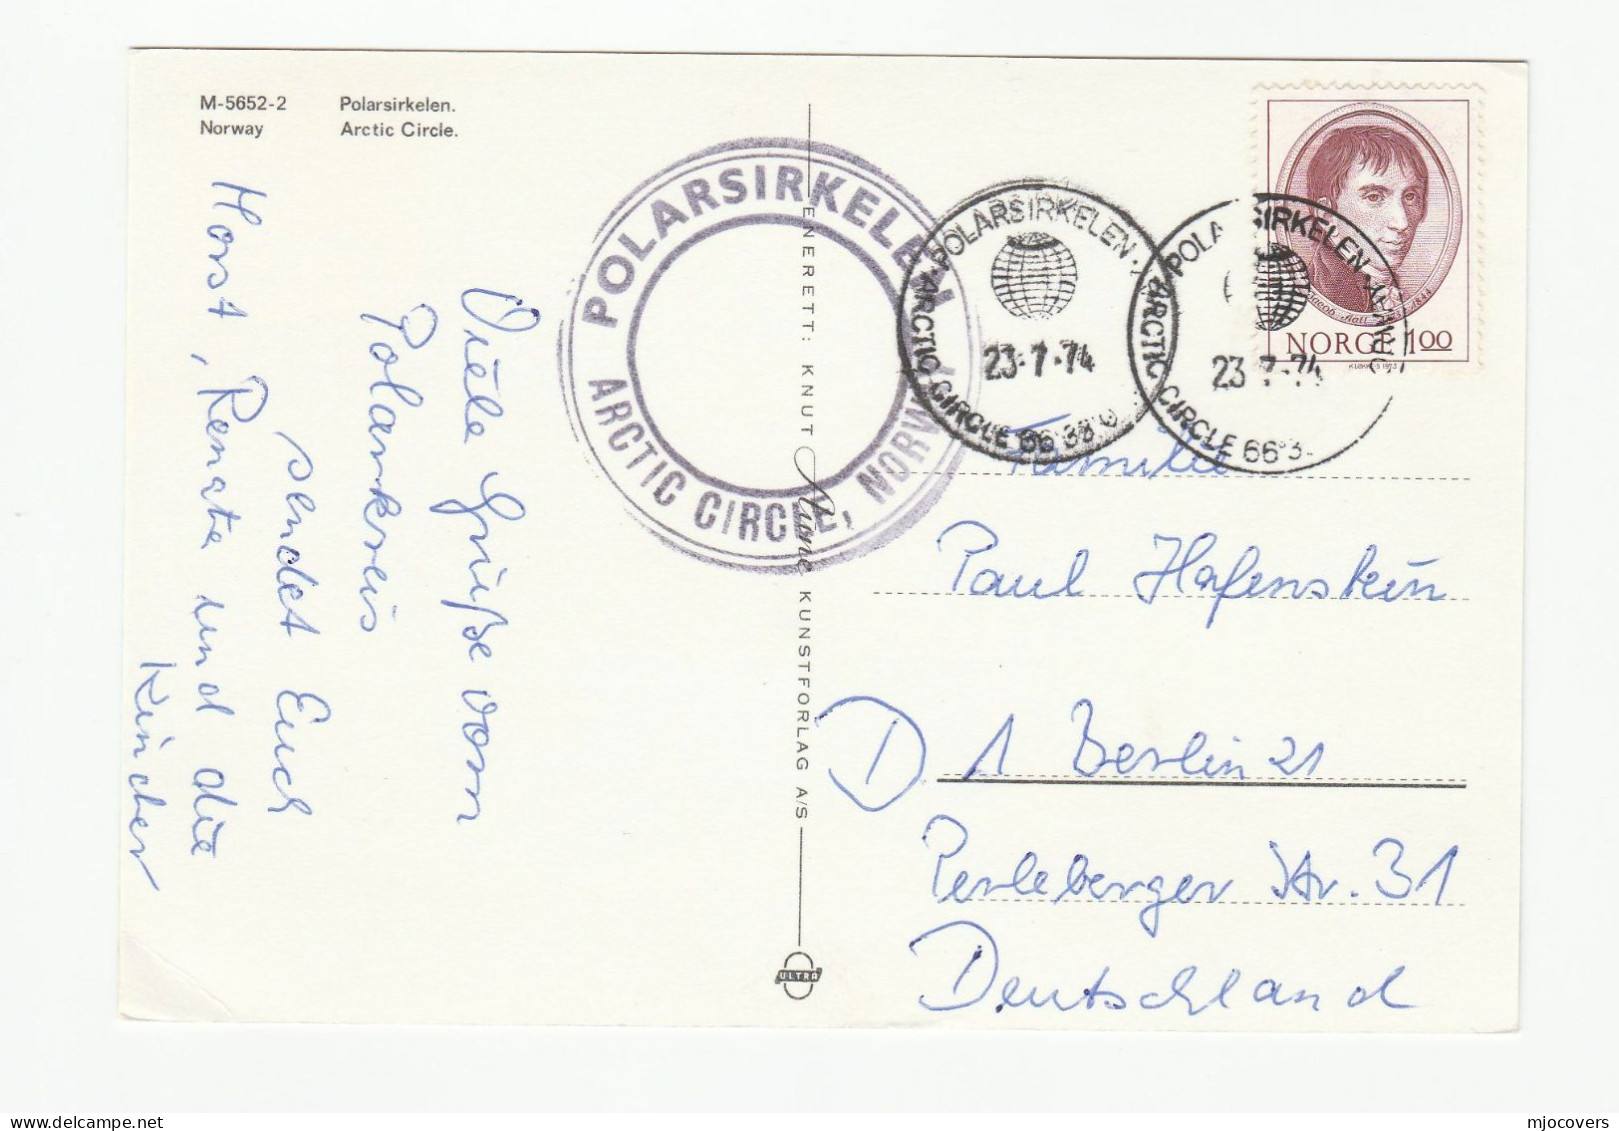 M-5652-2
Norway
Polarsirkelen.
Arctic Circle.
Viele Grüße vom
Polarkreis
sendet Euch
Horst, Renate und die
Kinder
POLARSIRKELEN
ARCTIC CIRCLE, NORWAY
ENERETT: KNUT Aune KUNSTFORLAG A/S
ULTRA
POLARSIRKELEN
ARCTIC CIRCLE 66°33
23·7·74
POLARSIRKELEN · NORWAY
ARCTIC CIRCLE 66°3
23 7 74
Jacob Aall
1844
NORGE 100
Familie
Paul Hafenstein
D 1 Berlin 21
Perleberger Str. 31
Deutschland
mjocovers